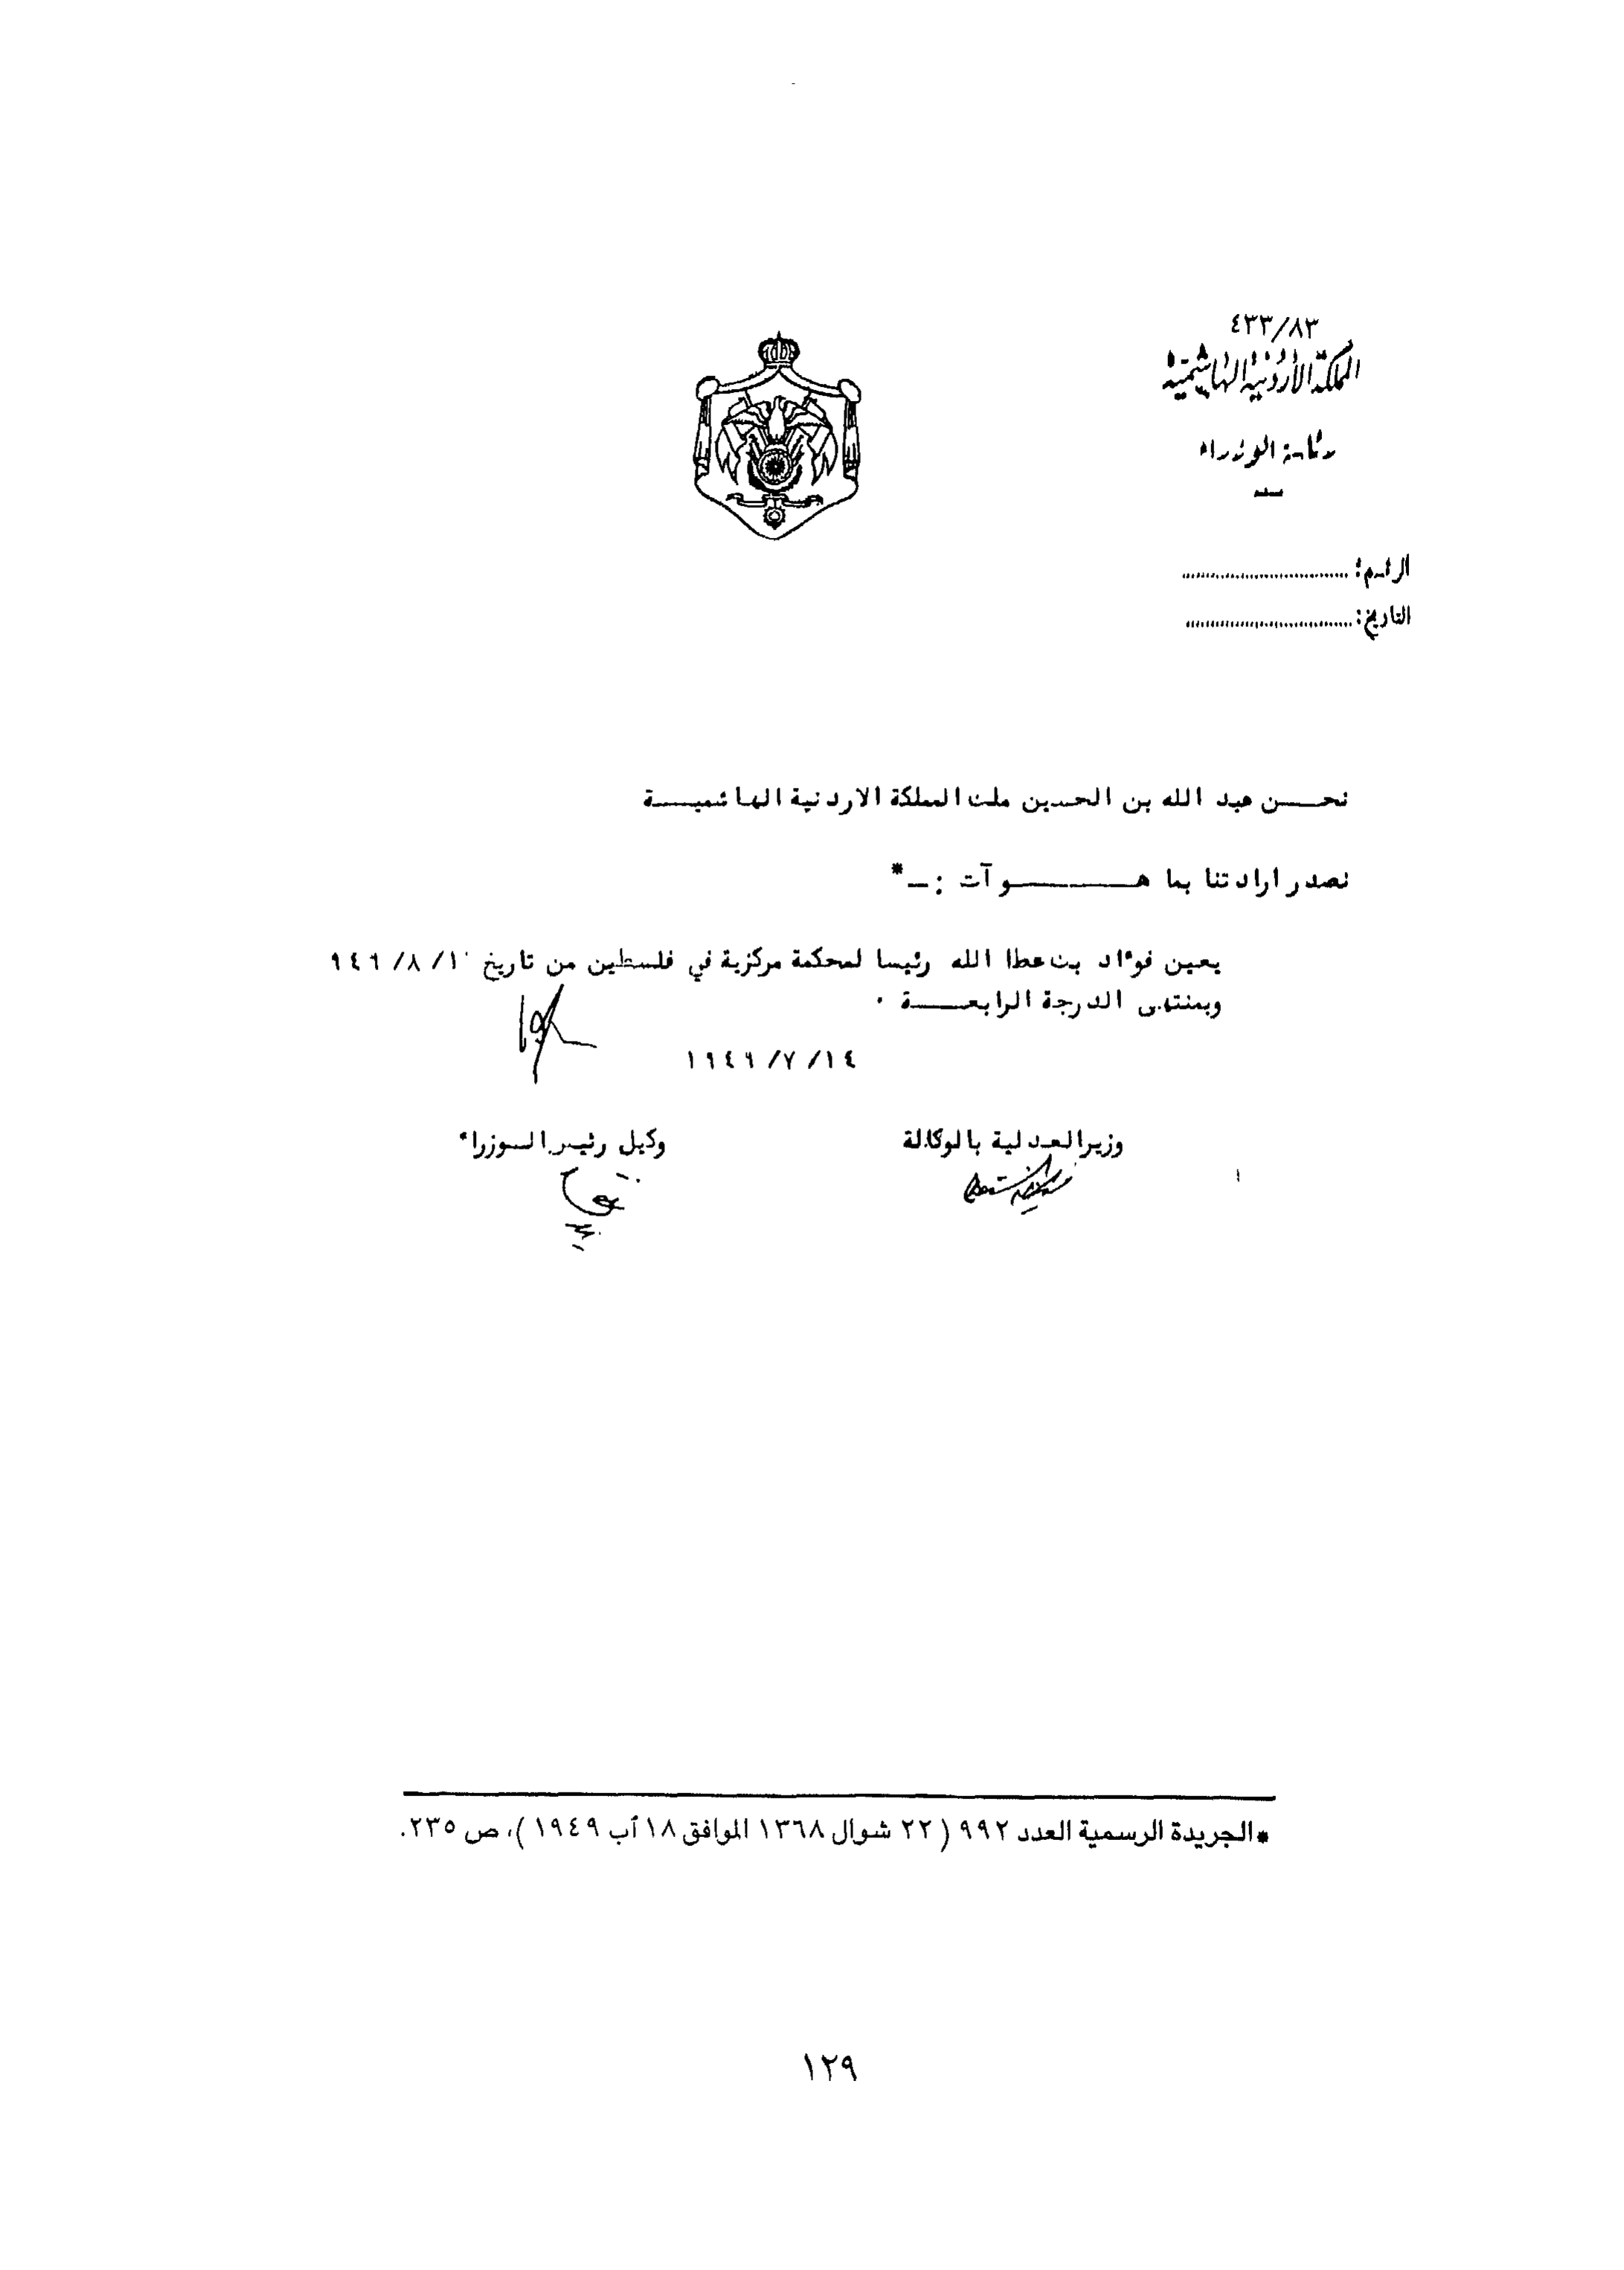 ٤٣٣/٨٣
المملكة الأردنية الهاشمية
رئاسة الوزراء
الرقم:
التاريخ:
نحـــن عبد الله بن الحسين ملك المملكة الاردنية الهاشميـــة
نصدر ارادتنا بما هـــــــو آت :ــ*
يعين فؤاد بك عطا الله رئيسا لمحكمة مركزية في فلسطين من تاريخ
وبمنتهى الدرجة الرابعـــة ٠
١٩٤٩/٧/١٤
وزير العدلية بالوكالة
وكيل رئيس الـوزراء
*الجريدة الرسمية العدد ٩٩٢ (٢٢ شوال ١٣٦٨ الموافق ١٨ آب ١٩٤٩)، ص ٢٣٥.
١٢٩